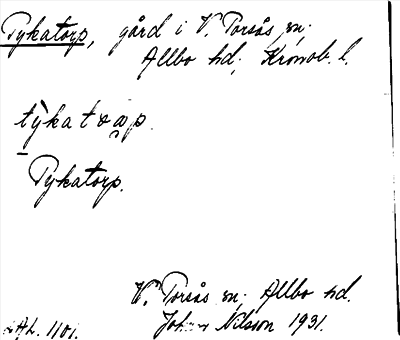 Pykatorp, gård i V. Torsås sn;
Allbo hd; Kronob. l.
týkatoap.
Pykatorp.
V. Torsås sn; Allbo hd.
1101. Johan Nilsson 1931.